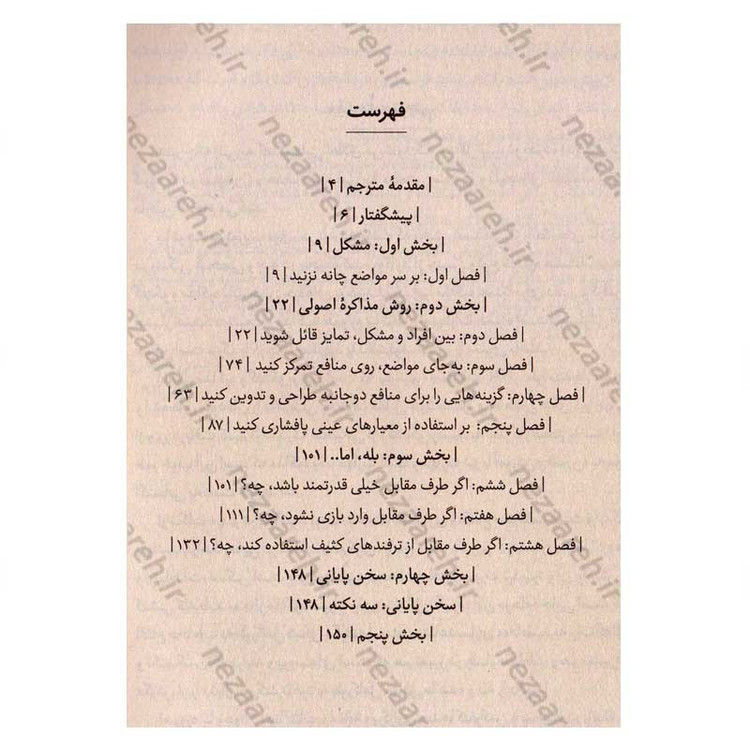 فهرست
| مقدمهٔ مترجم | ۴ |
| پیشگفتار | ۶ |
| بخش اول: مشکل | ۹ |
| فصل اول: بر سر مواضع چانه نزنید | ۹ |
| بخش دوم: روش مذاکرهٔ اصولی | ۲۲ |
| فصل دوم: بین افراد و مشکل، تمایز قائل شوید | ۲۲ |
| فصل سوم: به‌جای مواضع، روی منافع تمرکز کنید | ۷۴ |
| فصل چهارم: گزینه‌هایی را برای منافع دوجانبه طراحی و تدوین کنید | ۶۳ |
| فصل پنجم: بر استفاده از معیارهای عینی پافشاری کنید | ۸۷ |
| بخش سوم: بله، اما.. | ۱۰۱ |
| فصل ششم: اگر طرف مقابل خیلی قدرتمند باشد، چه؟ | ۱۰۱ |
| فصل هفتم: اگر طرف مقابل وارد بازی نشود، چه؟ | ۱۱۱ |
| فصل هشتم: اگر طرف مقابل از ترفندهای کثیف استفاده کند، چه؟ | ۱۳۲ |
| بخش چهارم: سخن پایانی | ۱۴۸ |
| سخن پایانی: سه نکته | ۱۴۸ |
| بخش پنجم | ۱۵۰ |
nezaareh.ir